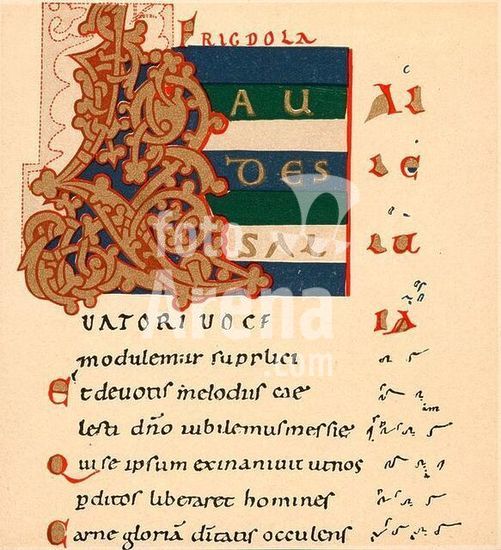 FRIGDOLA
L AU AL
DES LE
SAL LU
UATORI UOCE IA
modulemur supplici
Et deuotis melodiis cae
lesti dño iubilemus messie
Qui se ipsum exinaniuit ut nos
p̱ditos liberaret homines
Carne gloriā ditatis occulens
foto
Arena
.com